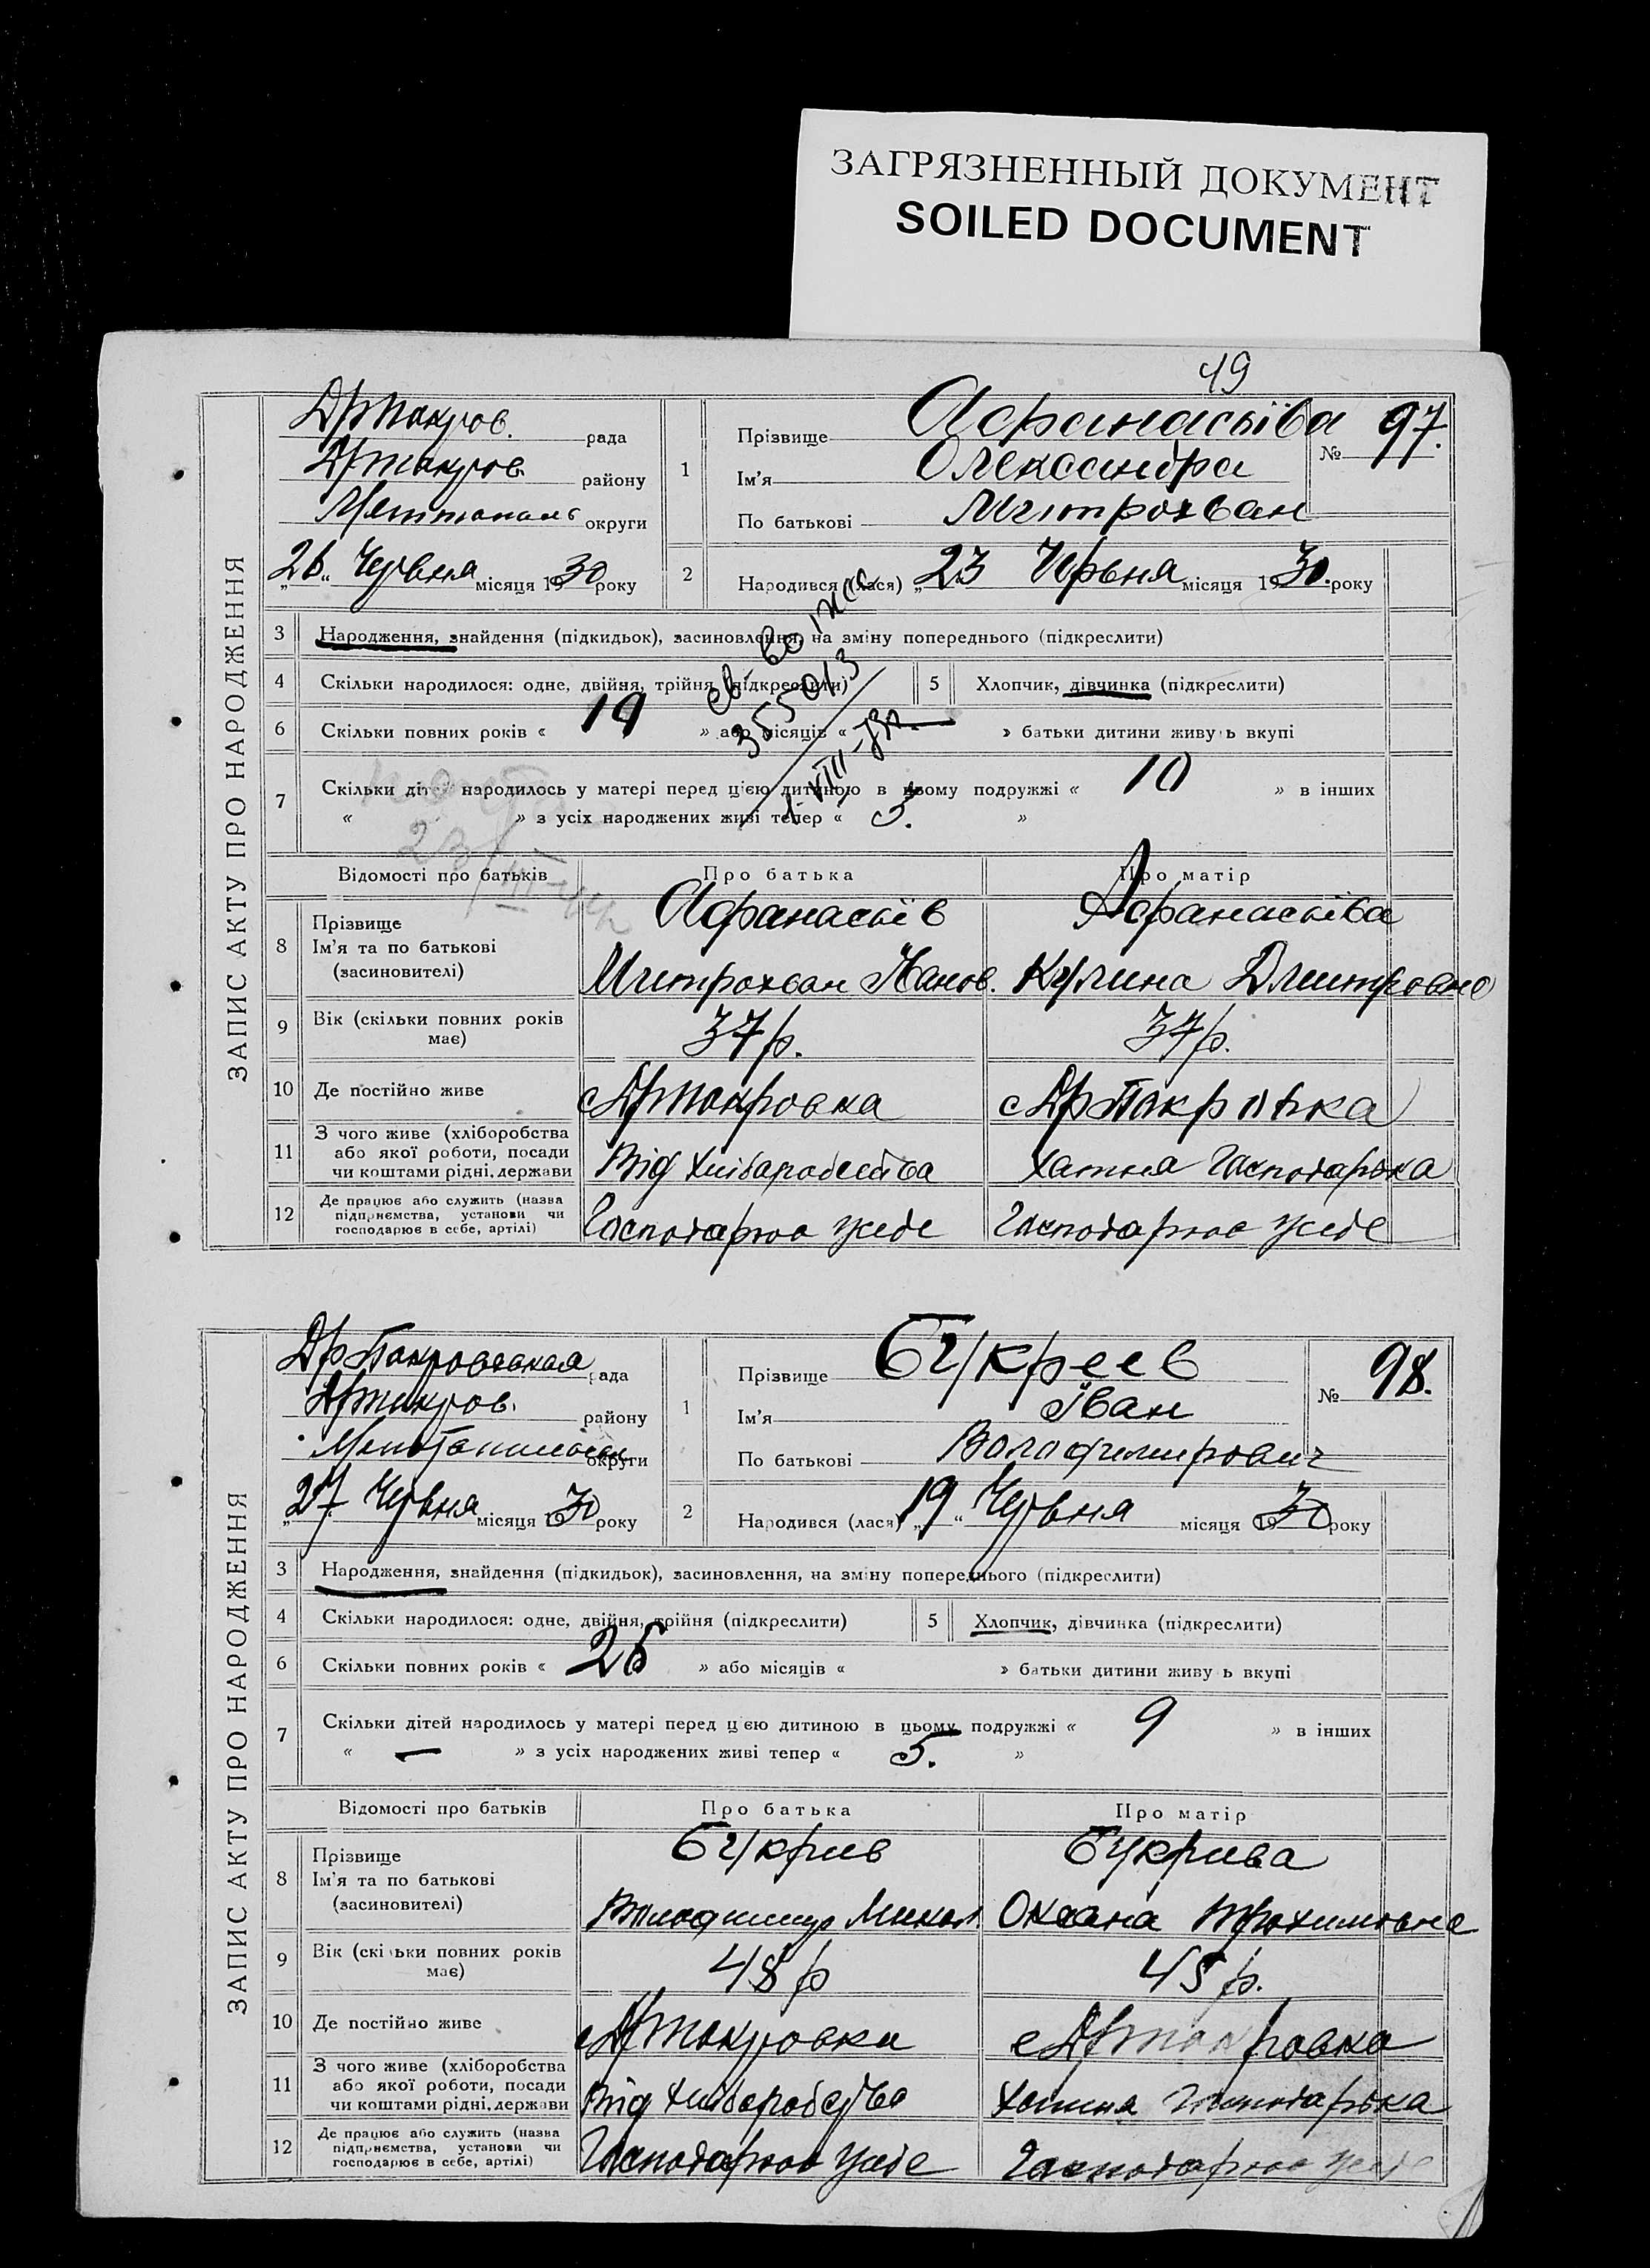 ЗАГРЯЗНЕННЫЙ ДОКУМЕНТ
SOILED DOCUMENT
49
ЗАПИС АКТУ ПРО НАРОДЖЕННЯ
Дрпокров. рада
Дрпокров. району
округи
„26“ Червня місяця 1930 року
1
Прізвище Афанасьїва
Ім'я Олександра
По батькові Митрохван
№ 97.
2
Народився (лася) „23 Червня місяця 1930. року
3 Народження, знайдення (підкидьок), засиновлення, на зміну попереднього (підкреслити)
4 Скільки народилося: одне, двійня, трійня (підкреслити)
5 Хлопчик, дівчинка (підкреслити)
6 Скільки повних років « 19 » або місяців « — » батьки дитини живуть вкупі
7 Скільки дітей народилось у матері перед цією дитиною в цьому подружжі « 10 » в інших
« » з усіх народжених живі тепер « 5. »
355013
Відомості про батьків Про батька Про матір
8 Прізвище
Ім'я та по батькові
(засиновителі)
Афанасьїв
Митрохван Иванов.
Афанасьїва
Кулина Дмитровна
9 Вік (скільки повних років
має)
37 р.
37 р.
10 Де постійно живе
с Дрпокровка
с Дрпокровка
11 З чого живе (хліборобства
або якої роботи, посади
чи коштами рідні, держави
Від хліборобства
Хатня господарка
12 Де працює або служить (назва
підприємства, установи чи
господарює в себе, артілі)
Господарює усебе
Господарює усебе
ЗАПИС АКТУ ПРО НАРОДЖЕННЯ
Дрпокровская рада
Дрпокров. району
округи
„27. Червня місяця 1930 року
1
Прізвище Букреев
Ім'я Іван
По батькові Володимирович
№ 98.
2
Народився (лася) „19“ Червня місяця 1930 року
3 Народження, знайдення (підкидьок), засиновлення, на зміну попереднього (підкреслити)
4 Скільки народилося: одне, двійня, трійня (підкреслити)
5 Хлопчик, дівчинка (підкреслити)
6 Скільки повних років « » або місяців « » батьки дитини живуть вкупі
7 Скільки дітей народилось у матері перед цією дитиною в цьому подружжі « 9 » в інших
« — » з усіх народжених живі тепер « 5. »
Відомості про батьків Про батька Про матір
8 Прізвище
Ім'я та по батькові
(засиновителі)
Букрив
Володимир Микол
Букрива
Оксана Трохимовна
9 Вік (скільки повних років
має)
48 р
45 р.
10 Де постійно живе
с Дрпокровка
с Дрпокровка
11 З чого живе (хліборобства
або якої роботи, посади
чи коштами рідні, держави
Від хліборобства
Хатня господарка
12 Де працює або служить (назва
підприємства, установи чи
господарює в себе, артілі)
Господарює усебе
Господарює усебе